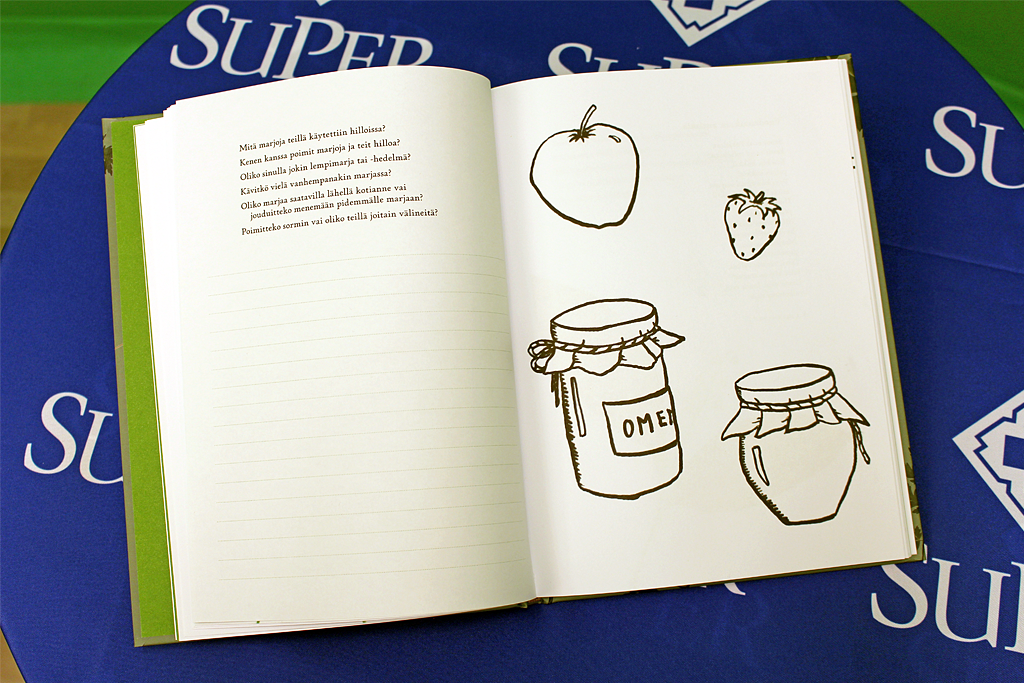 SUPER
SUPER
SU
Mitä marjoja teillä käytettiin hilloissa?
Kenen kanssa poimit marjoja ja teit hilloa?
Oliko sinulla jokin lempimarja tai -hedelmä?
Kävitkö vielä vanhempanakin marjassa?
Oliko marjaa saatavilla lähellä kotianne vai
jouduitteko menemään pidemmälle marjaan?
Poimitteko sormin vai oliko teillä joitain välineitä?
OMEN
SU
SUP